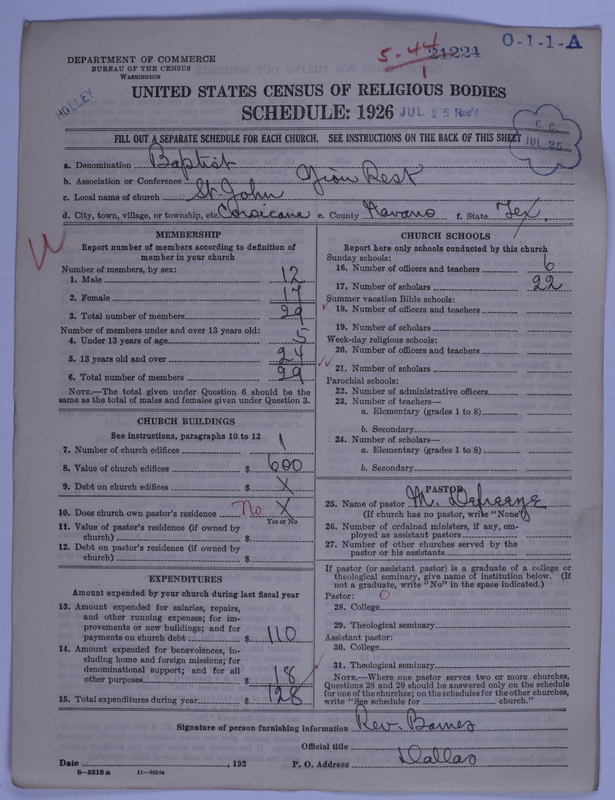 5-44
1
21224
O-1-1-A
DEPARTMENT OF COMMERCE
BUREAU OF THE CENSUS
WASHINGTON
HOLLEY
UNITED STATES CENSUS OF RELIGIOUS BODIES
SCHEDULE: 1926
JUL 25 Rec'd
C. C.
JUL 25
FILL OUT A SEPARATE SCHEDULE FOR EACH CHURCH. SEE INSTRUCTIONS ON THE BACK OF THIS SHEET
a. Denomination Baptist
b. Association or Conference Zion Rest
c. Local name of church St. John
d. City, town, village, or township, etc. Corsicana e. County Navaro f. State Tex.
MEMBERSHIP
Report number of members according to definition of
member in your church
Number of members, by sex:
1. Male 12
2. Female 17
3. Total number of members 29
Number of members under and over 13 years old:
4. Under 13 years of age 5
5. 13 years old and over 24
6. Total number of members 29
NOTE.—The total given under Question 6 should be the
same as the total of males and females given under Question 3.
CHURCH BUILDINGS
See instructions, paragraphs 10 to 12
7. Number of church edifices 1
8. Value of church edifices $ 600
9. Debt on church edifices $ X
10. Does church own pastor's residence No X
Yes or No
11. Value of pastor's residence (if owned by
church) $
12. Debt on pastor's residence (if owned by
church) $
EXPENDITURES
Amount expended by your church during last fiscal year
13. Amount expended for salaries, repairs,
and other running expenses; for im-
provements or new buildings; and for
payments on church debt $ 110
14. Amount expended for benevolences, in-
cluding home and foreign missions; for
denominational support; and for all
other purposes $ 18
15. Total expenditures during year $ 128
CHURCH SCHOOLS
Report here only schools conducted by this church
Sunday schools:
16. Number of officers and teachers 6
17. Number of scholars 22
Summer vacation Bible schools:
18. Number of officers and teachers
19. Number of scholars
Week-day religious schools:
20. Number of officers and teachers
21. Number of scholars
Parochial schools:
22. Number of administrative officers
23. Number of teachers—
a. Elementary (grades 1 to 8)
b. Secondary
24. Number of scholars—
a. Elementary (grades 1 to 8)
b. Secondary
PASTOR
25. Name of pastor M. Defreeze
(If church has no pastor, write "None")
26. Number of ordained ministers, if any, em-
ployed as assistant pastors
27. Number of other churches served by the
pastor or his assistants
If pastor (or assistant pastor) is a graduate of a college or
theological seminary, give name of institution below. (If
not a graduate, write "No" in the space indicated.)
Pastor: O
28. College
29. Theological seminary
Assistant pastor:
30. College
31. Theological seminary
NOTE.—Where one pastor serves two or more churches,
Questions 28 and 29 should be answered only on the schedule
for one of the churches; on the schedules for the other churches,
write "See schedule for church."
Signature of person furnishing information Rev. Barnes
Official title
Date , 192 P. O. Address Dallas
8-5518 a 11-9054a